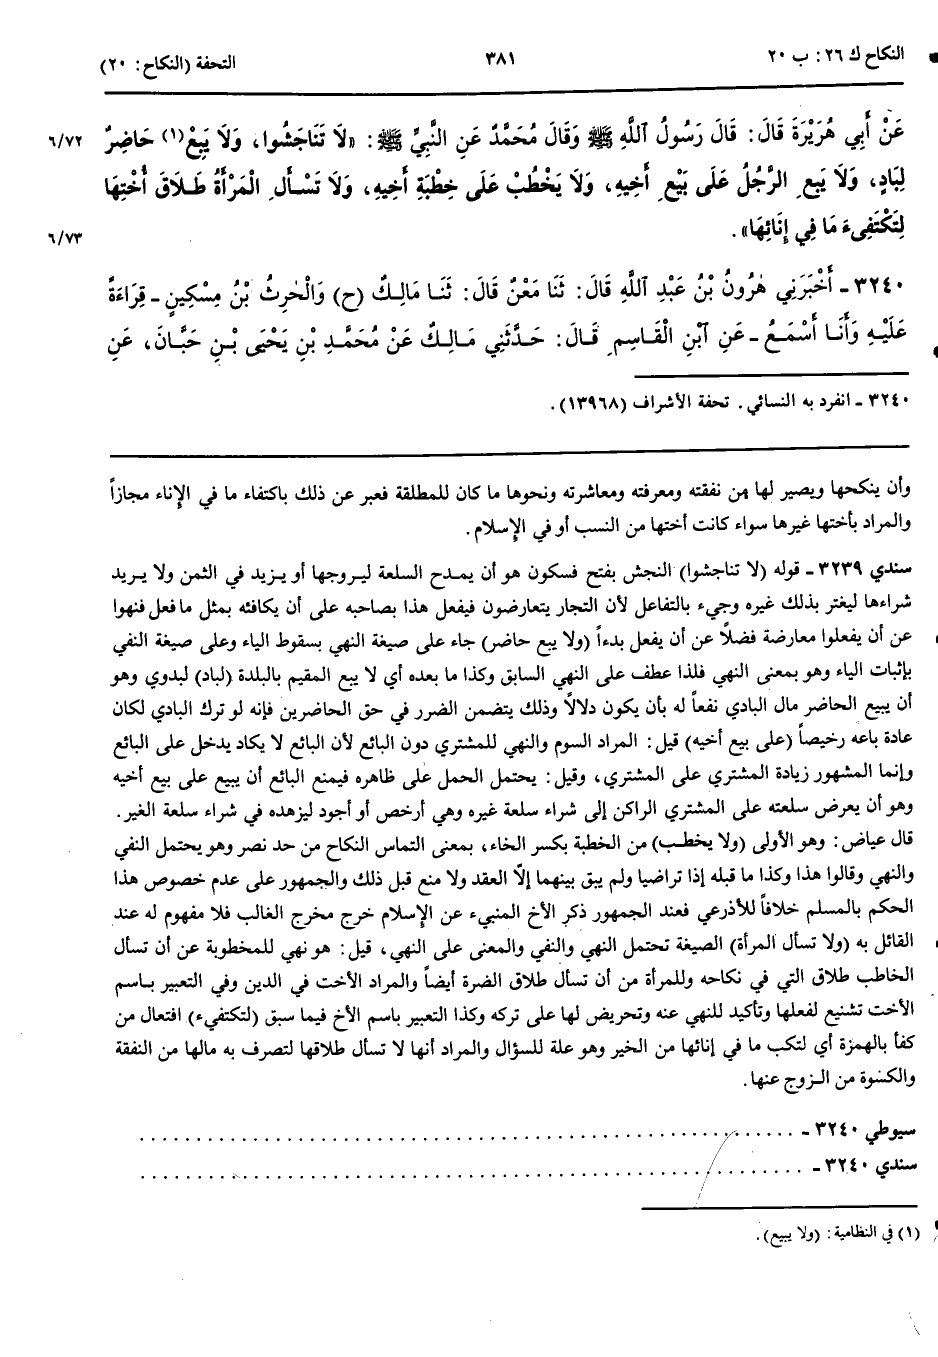 النكاح ك ٢٦: ب ٢٠ ٣٨١ التحفة (النكاح: ٢٠)
عَنْ أَبِي هُرَيْرَةَ قَالَ: قَالَ رَسُولُ ٱللَّهِ ﷺ وَقَالَ مُحَمَّدٌ عَنِ النَّبِيِّ ﷺ: «لَا تَنَاجَشُوا، وَلَا يَبِعْ(١) حَاضِرٌ ٦/٧٢
لِبَادٍ، وَلَا يَبِعِ الرَّجُلُ عَلَى بَيْعِ أَخِيهِ، وَلَا يَخْطُبْ عَلَى خِطْبَةِ أَخِيهِ، وَلَا تَسْأَلِ الْمَرْأَةُ طَلَاقَ أُخْتِهَا
لِتَكْتَفِىءَ مَا فِي إِنَائِهَا». ٦/٧٣
٣٢٤٠ ـ أَخْبَرَنِي هٰرُونُ بْنُ عَبْدِ ٱللَّهِ قَالَ: ثَنَا مَعْنٌ قَالَ: ثَنَا مَالِكٌ (ح) وَالْحٰرِثُ بْنُ مِسْكِينٍ ـ قِرَاءَةً
عَلَيْهِ وَأَنَا أَسْمَعُ ـ عَنِ ٱبْنِ الْقَاسِمِ قَالَ: حَدَّثَنِي مَالِكٌ عَنْ مُحَمَّدِ بْنِ يَحْيَى بْنِ حَبَّانَ، عَنِ
٣٢٤٠ ـ انفرد به النسائي. تحفة الأشراف (١٣٩٦٨).
وأن ينكحها ويصير لها من نفقته ومعرفته ومعاشرته ونحوها ما كان للمطلقة فعبر عن ذلك باكتفاء ما في الإناء مجازاً
والمراد بأختها غيرها سواء كانت أختها من النسب أو في الإسلام.
سندي ٣٢٣٩ ـ قوله (لا تناجشوا) النجش بفتح فسكون هو أن يمدح السلعة ليروجها أو يزيد في الثمن ولا يريد
شراءها ليغتر بذلك غيره وجيء بالتفاعل لأن التجار يتعارضون فيفعل هذا بصاحبه على أن يكافئه بمثل ما فعل فنهوا
عن أن يفعلوا معارضة فضلاً عن أن يفعل بدءاً (ولا يبع حاضر) جاء على صيغة النهي بسقوط الياء وعلى صيغة النفي
بإثبات الياء وهو بمعنى النهي فلذا عطف على النهي السابق وكذا ما بعده أي لا يبع المقيم بالبلدة (لباد) لبدوي وهو
أن يبيع الحاضر مال البادي نفعاً له بأن يكون دلالاً وذلك يتضمن الضرر في حق الحاضرين فإنه لو ترك البادي لكان
عادة باعه رخيصاً (على بيع أخيه) قيل: المراد السوم والنهي للمشتري دون البائع لأن البائع لا يكاد يدخل على البائع
وإنما المشهور زيادة المشتري على المشتري، وقيل: يحتمل الحمل على ظاهره فيمنع البائع أن يبيع على بيع أخيه
وهو أن يعرض سلعته على المشتري الراكن إلى شراء سلعة غيره وهي أرخص أو أجود ليزهده في شراء سلعة الغير.
قال عياض: وهو الأولى (ولا يخطب) من الخطبة بكسر الخاء، بمعنى التماس النكاح من حد نصر وهو يحتمل النفي
والنهي وقالوا هذا وكذا ما قبله إذا تراضيا ولم يبق بينهما إلاّ العقد ولا منع قبل ذلك والجمهور على عدم خصوص هذا
الحكم بالمسلم خلافاً للأذرعي فعند الجمهور ذكر الأخ المنبيء عن الإسلام خرج مخرج الغالب فلا مفهوم له عند
القائل به (ولا تسأل المرأة) الصيغة تحتمل النهي والنفي والمعنى على النهي، قيل: هو نهي للمخطوبة عن أن تسأل
الخاطب طلاق التي في نكاحه وللمرأة من أن تسأل طلاق الضرة أيضاً والمراد الأخت في الدين وفي التعبير باسم
الأخت تشنيع لفعلها وتأكيد للنهي عنه وتحريض لها على تركه وكذا التعبير باسم الأخ فيما سبق (لتكتفيء) افتعال من
كفأ بالهمزة أي لتكب ما في إنائها من الخير وهو علة للسؤال والمراد أنها لا تسأل طلاقها لتصرف به مالها من النفقة
والكسوة من الزوج عنها.
سيوطي ٣٢٤٠ ـ ............................................................
سندي ٣٢٤٠ ـ ............................................................
(١) في النظامية: (ولا يبيع).